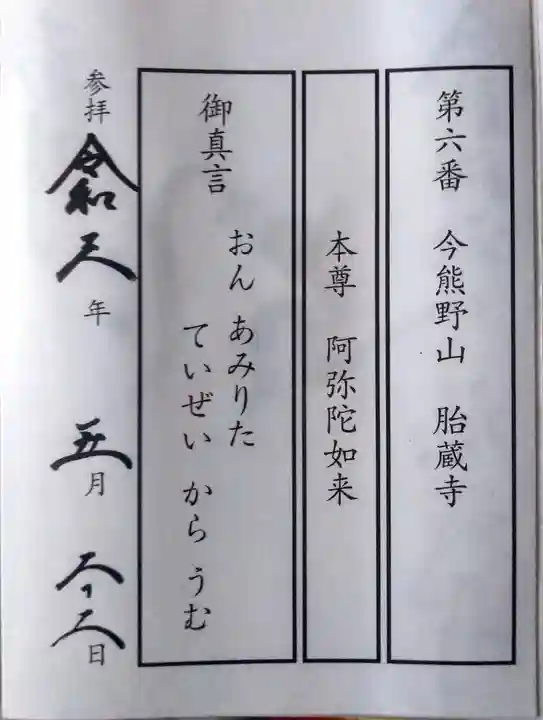 第六番 今熊野山 胎蔵寺
本尊 阿弥陀如来
御真言
おん あみりた
ていぜい から うむ
参拝 令和元年 五月 六日